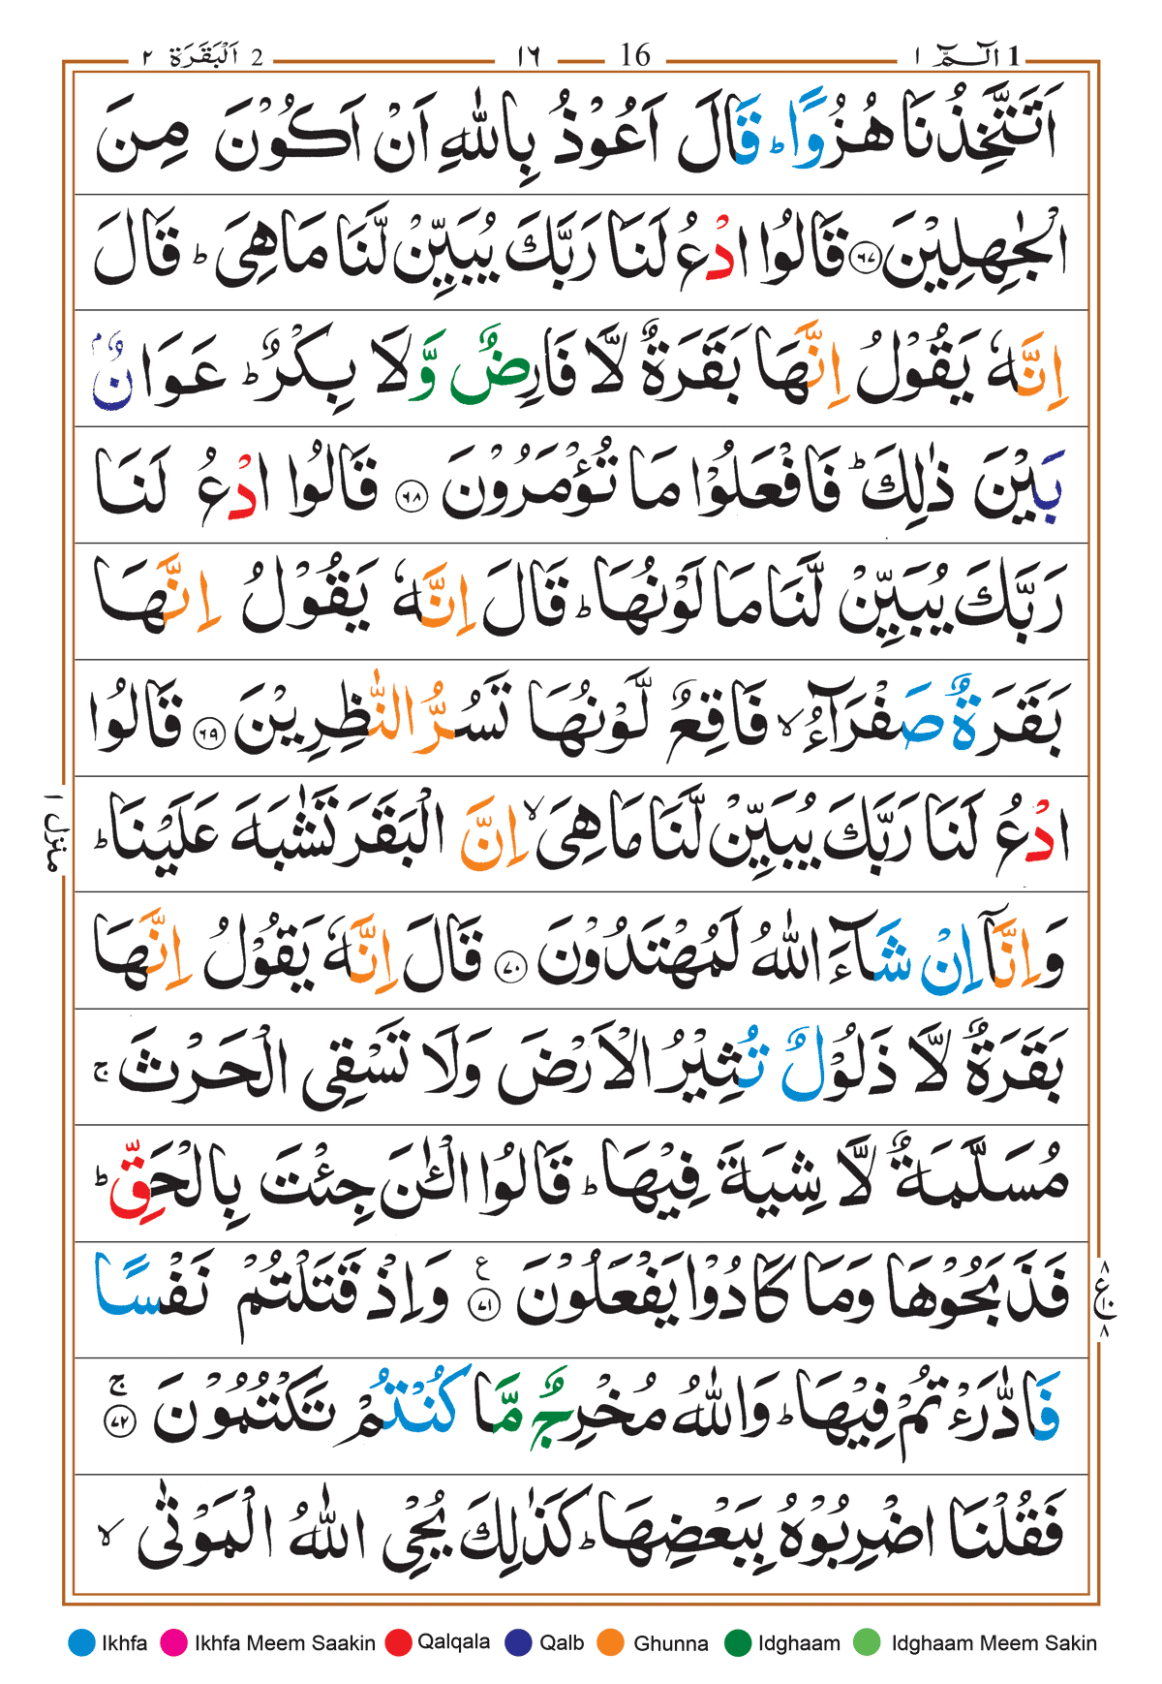 1 الٓـمّٓ ١ 16 ١٦ 2 اَلْبَقَرَة ٢
اَتَتَّخِذُنَا هُزُوًاؕ قَالَ اَعُوْذُ بِاللّٰهِ اَنْ اَكُوْنَ مِنَ
الْجٰهِلِيْنَ ۝٦٧ قَالُوا ادْعُ لَنَا رَبَّكَ يُبَيِّنْ لَّنَا مَا هِىَؕ قَالَ
اِنَّهٗ يَقُوْلُ اِنَّهَا بَقَرَةٌ لَّا فَارِضٌ وَّلَا بِكْرٌؕ عَوَانٌۢ
بَيْنَ ذٰلِكَؕ فَافْعَلُوْا مَا تُؤْمَرُوْنَ ۝٦٨ قَالُوا ادْعُ لَنَا
رَبَّكَ يُبَيِّنْ لَّنَا مَا لَوْنُهَاؕ قَالَ اِنَّهٗ يَقُوْلُ اِنَّهَا
بَقَرَةٌ صَفْرَآءُۙ فَاقِعٌ لَّوْنُهَا تَسُرُّ النّٰظِرِيْنَ ۝٦٩ قَالُوا
ادْعُ لَنَا رَبَّكَ يُبَيِّنْ لَّنَا مَا هِىَۙ اِنَّ الْبَقَرَ تَشٰبَهَ عَلَيْنَاؕ
منزل ١
وَاِنَّاۤ اِنْ شَآءَ اللّٰهُ لَمُهْتَدُوْنَ ۝٧٠ قَالَ اِنَّهٗ يَقُوْلُ اِنَّهَا
بَقَرَةٌ لَّا ذَلُوْلٌ تُثِيْرُ الْاَرْضَ وَلَا تَسْقِى الْحَرْثَۚ
مُسَلَّمَةٌ لَّا شِيَةَ فِيْهَاؕ قَالُوا الْـٰٔنَ جِئْتَ بِالْحَقِّؕ
فَذَبَحُوْهَا وَمَا كَادُوْا يَفْعَلُوْنَ ۝٧١ ع وَاِذْ قَتَلْتُمْ نَفْسًا
٨ ع ١٠ ٨
فَادّٰرَءْتُمْ فِيْهَاؕ وَاللّٰهُ مُخْرِجٌ مَّا كُنْتُمْ تَكْتُمُوْنَ ۝٧٢ۚ
فَقُلْنَا اضْرِبُوْهُ بِبَعْضِهَاؕ كَذٰلِكَ يُحْىِ اللّٰهُ الْمَوْتٰىۙ
Ikhfa Ikhfa Meem Saakin Qalqala Qalb Ghunna Idghaam Idghaam Meem Sakin